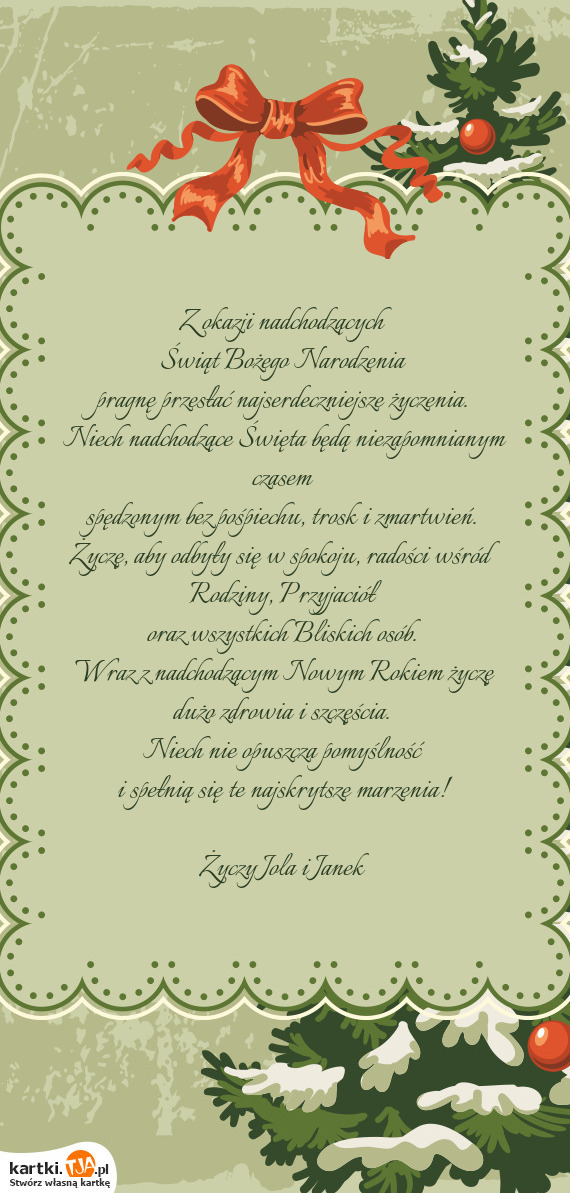 Z okazji nadchodzących
Świąt Bożego Narodzenia
pragnę przesłać najserdeczniejsze życzenia.
Niech nadchodzące Święta będą niezapomnianym
czasem
spędzonym bez pośpiechu, trosk i zmartwień.
Życzę, aby odbyły się w spokoju, radości wśród
Rodziny, Przyjaciół
oraz wszystkich Bliskich osób.
Wraz z nadchodzącym Nowym Rokiem życzę
dużo zdrowia i szczęścia.
Niech nie opuszcza pomyślność
i spełnią się te najskrytsze marzenia!
Życzy Jola i Janek
kartki.TJA.pl
Stwórz własną kartkę